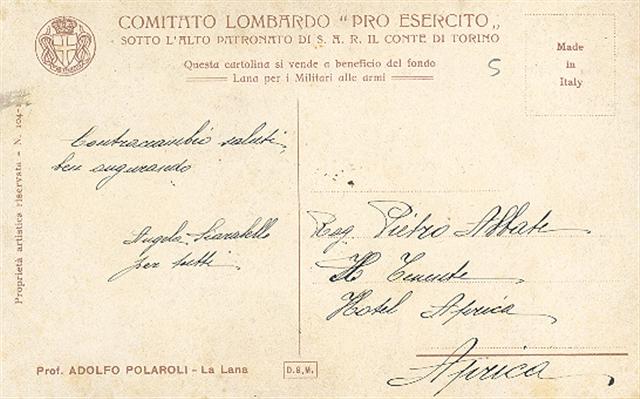 COMITATO LOMBARDO "PRO ESERCITO"
SOTTO L'ALTO PATRONATO DI S. A. R. IL CONTE DI TORINO
Questa cartolina si vende a beneficio del fondo
Lana per i Militari alle armi
5
Made
in
Italy
Proprietà artistica riservata - N. 104-
Contraccambio saluti
ben augurando
Angelo
per tutti
Rag. Pietro Abbate
Tenente
Hotel Aprica
Aprica
Prof. ADOLFO POLAROLI - La Lana
D.&M.